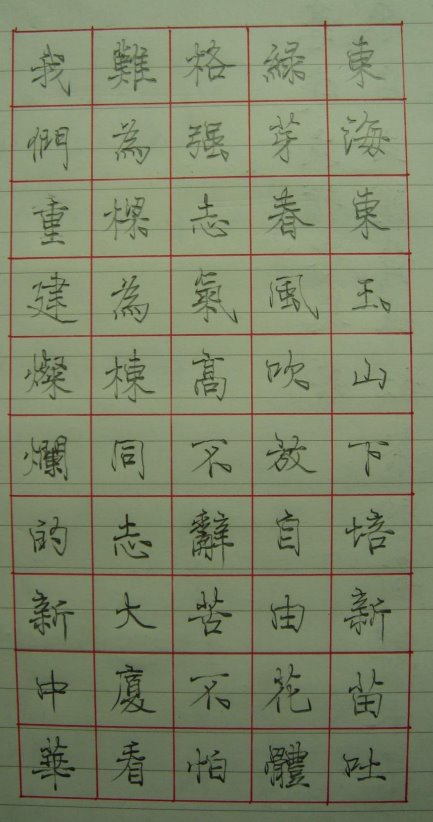 東海東玉山下培新苗吐
綠芽春風吹放自由花體
格強志氣高不辭苦不怕
難為樑為棟同志大廈看
我們重建燦爛的新中華